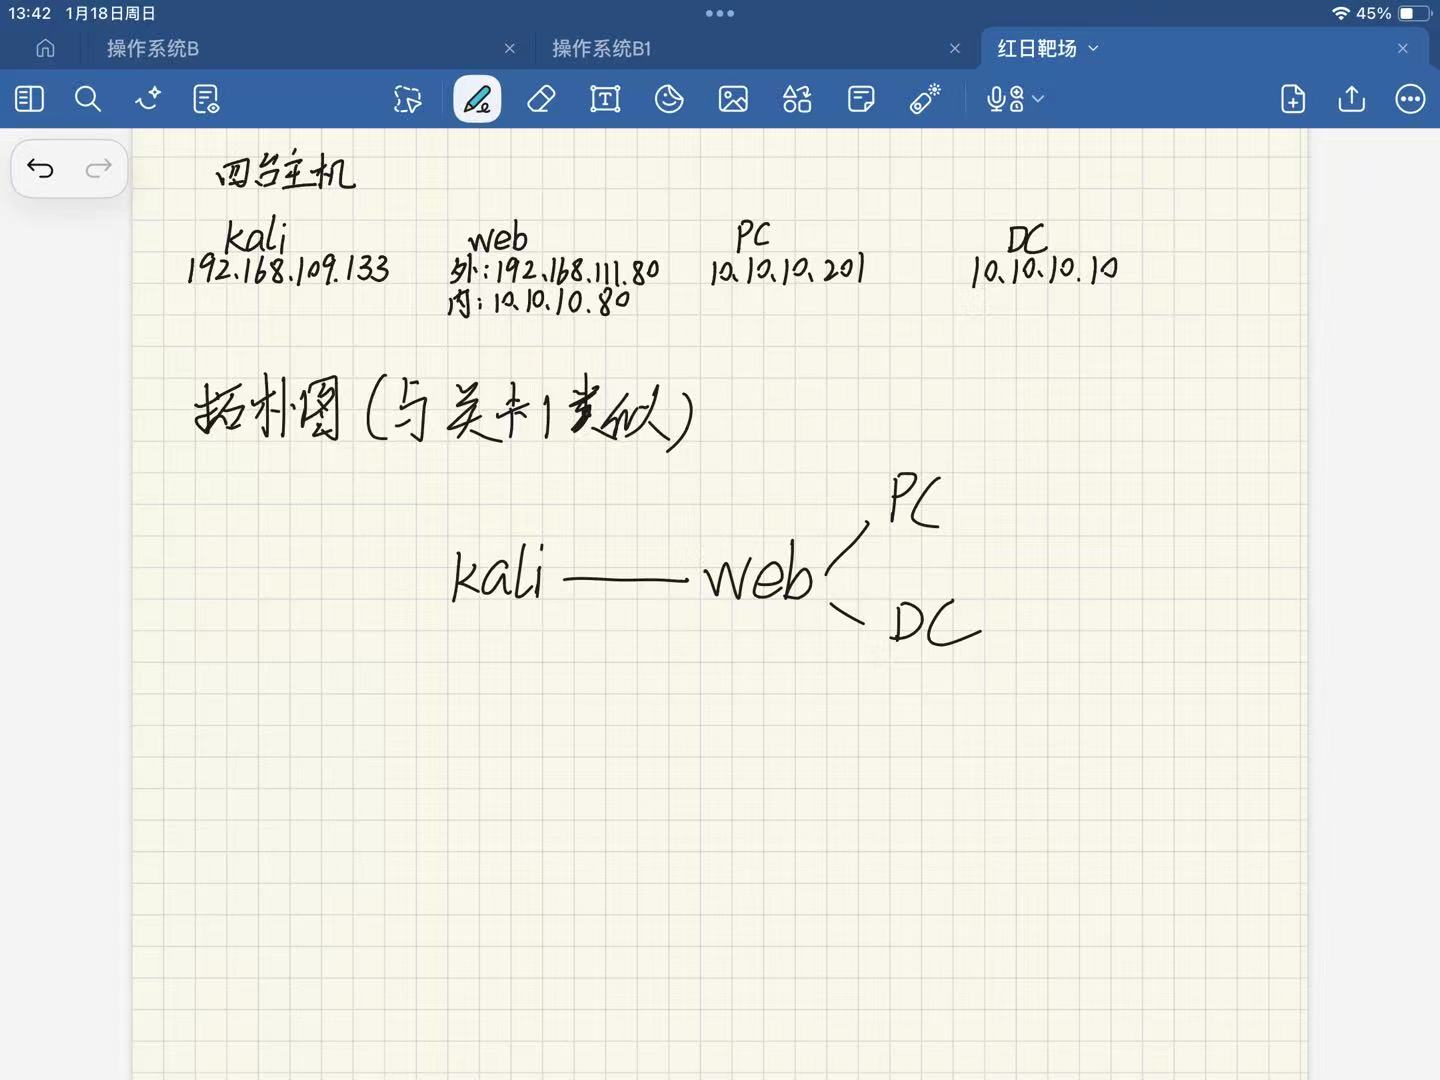 13:42 1月18日周日
45%
操作系统B
操作系统B1
红日靶场
四台主机
kali
web
PC
DC
192.168.109.133
外:192.168.111.80
10.10.10.201
10.10.10.10
内:10.10.10.80
拓朴图(与关卡1类似)
PC
kali
web
DC